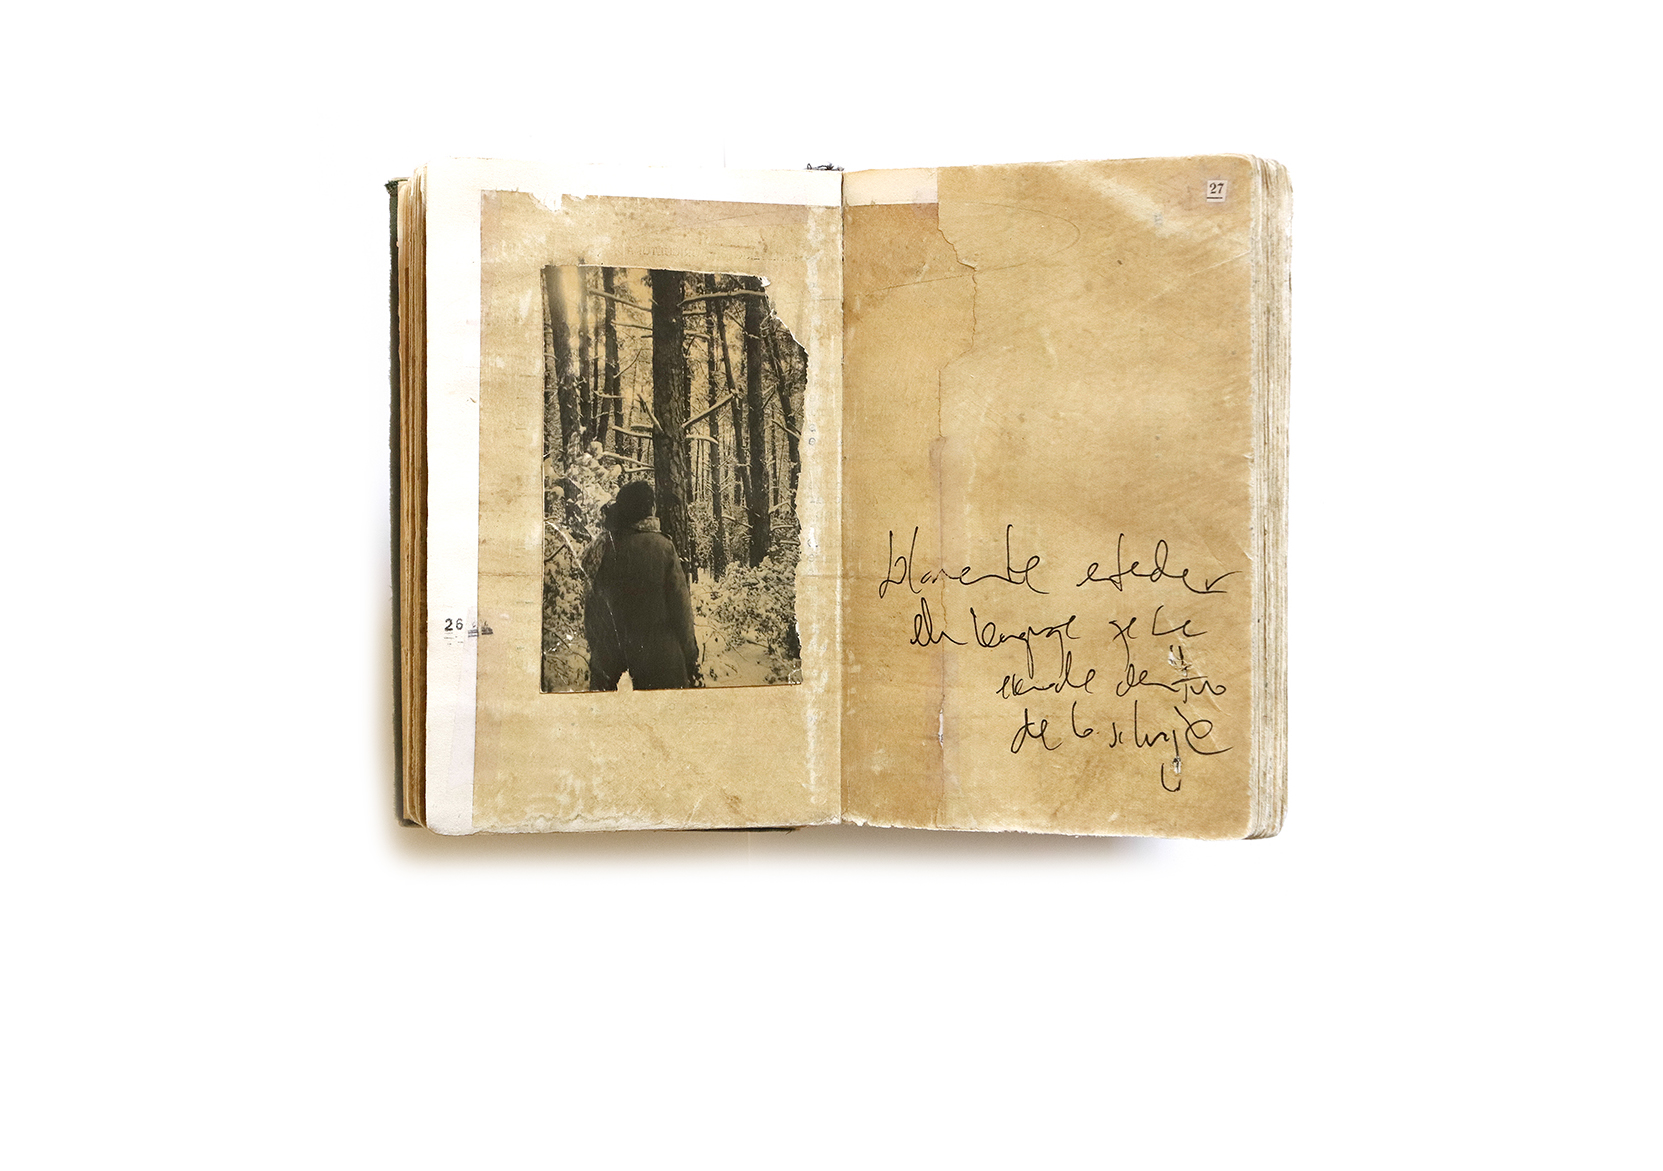 26
27
solamente entender
el lenguaje que se
esconde dentro
de lo salvaje